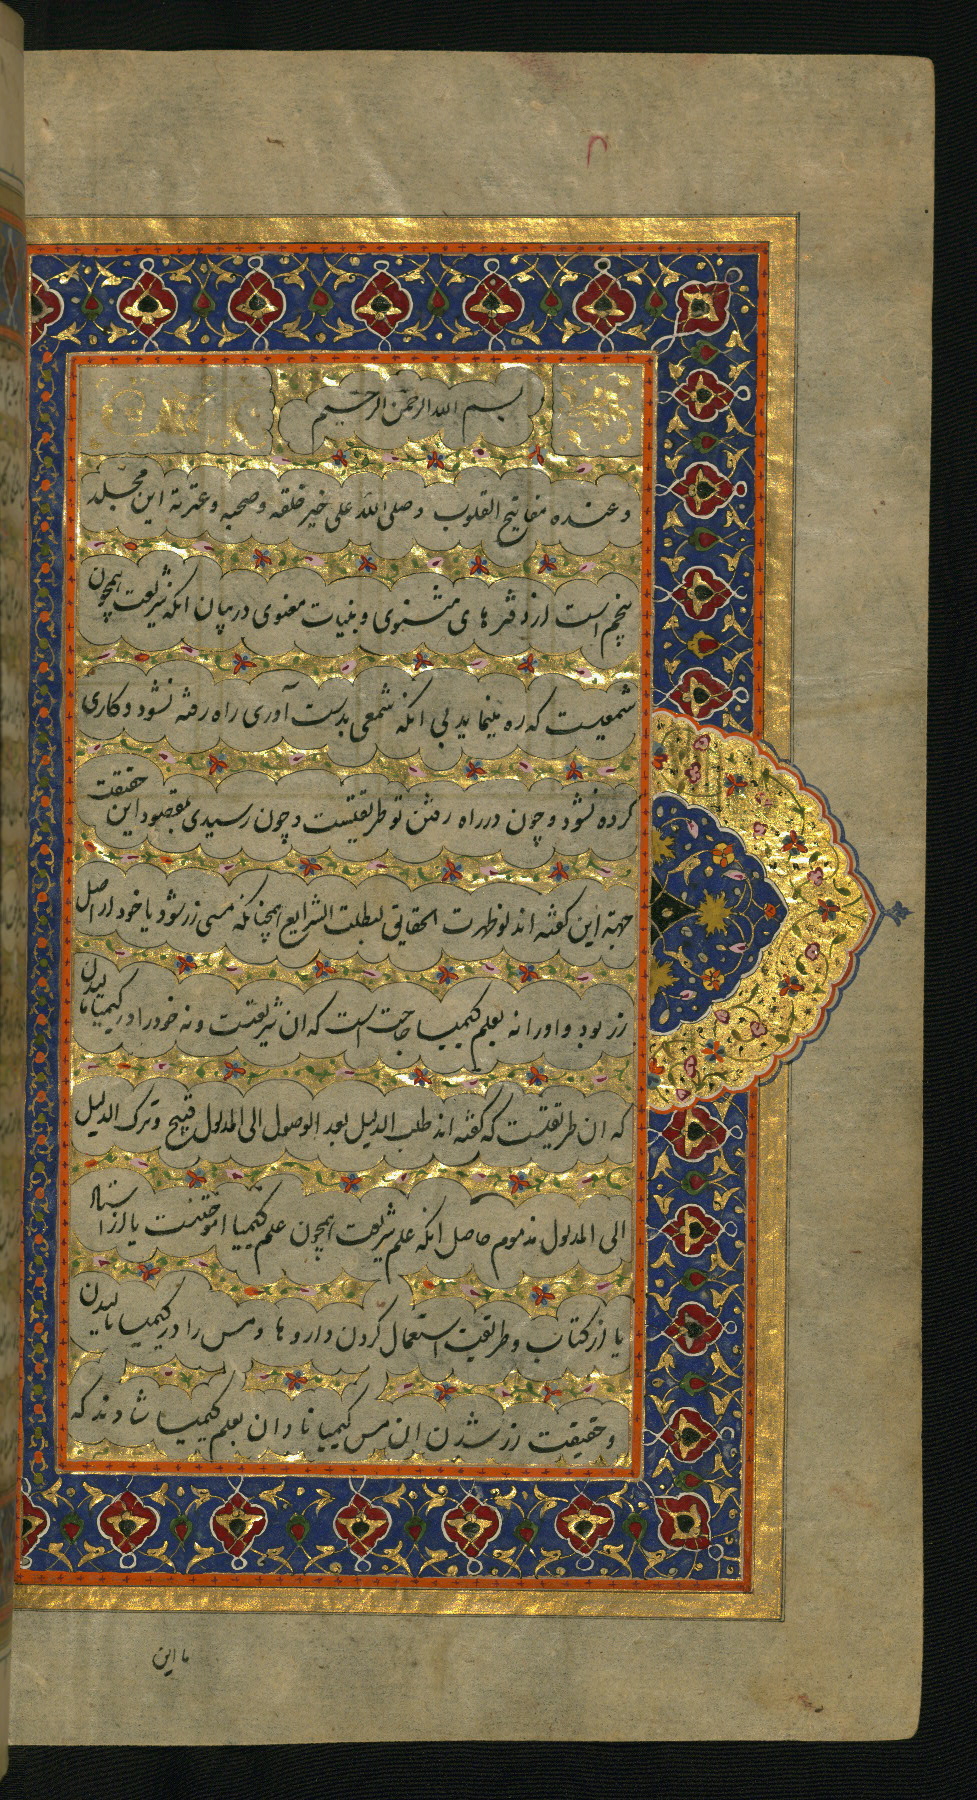 بسم الله الرحمن الرحیم
وعنده مفاتیح القلوب وصلی الله علی خیر خلقه وصحبه وعترته این مجلد
پنجم است از دفترهای مثنوی و بنیات معنوی دربیان انکه شریعت همچون
شمعیست که ره مینماید بی انکه شمعی بدست آوری راه رفته نشود وکاری
کرده نشود وچون درراه رفتن تو طریقتیست وچون رسیدی بمقصود این حقیقت
جهة این گفته اند لوظهرت الحقایق لبطلت الشرایع همچنانکه مسی زرشود یا خود از اصل
زر بود واورا نه بعلم کیمیا حاجت است که ان شریعتست ونه خودرا درکیمیا مالیدن
که ان طریقتیست که گفته اند طلب الدلیل بعد الوصول الی المدلول قبیح وترک الدلیل
الی المدلول مذموم حاصل انکه علم شریعت همچون علم کیمیا اموختنست یا از استاد
یا از کتاب وطریقت استعمال کردن داروها ومس را درکیمیا مالیدن
وحقیقت زرشدن ان مس کیمیا نادان بعلم کیمیا شادند که
ما این